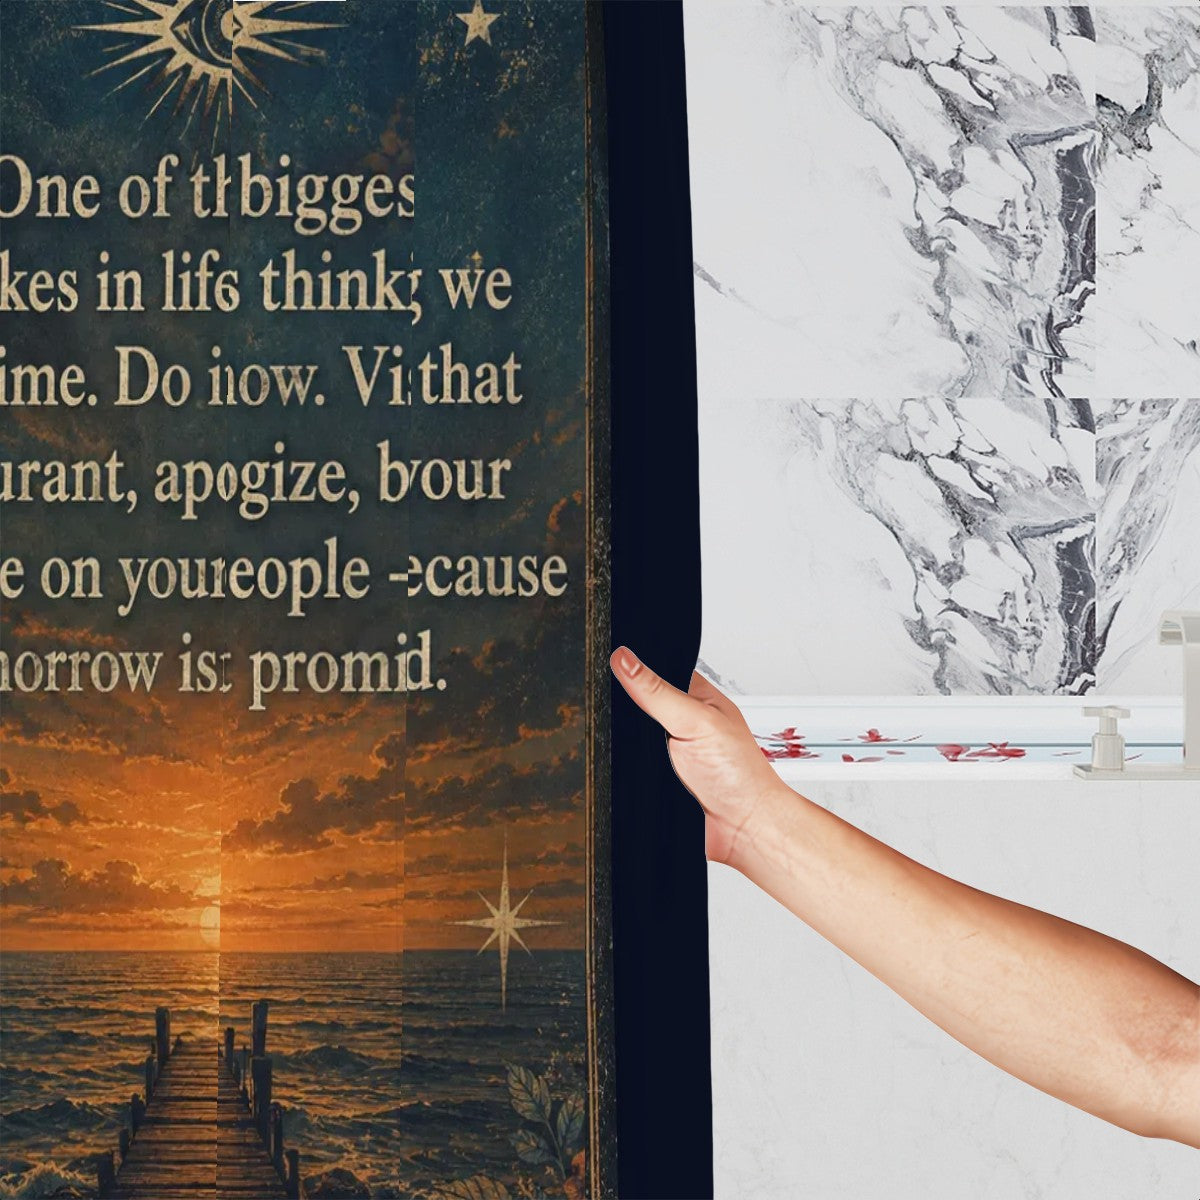 One of th bigges
kes in life thinki we
ime. Do now. Vi that
urant, apogize, b your
e on your eople - ecause
morrow is promid.